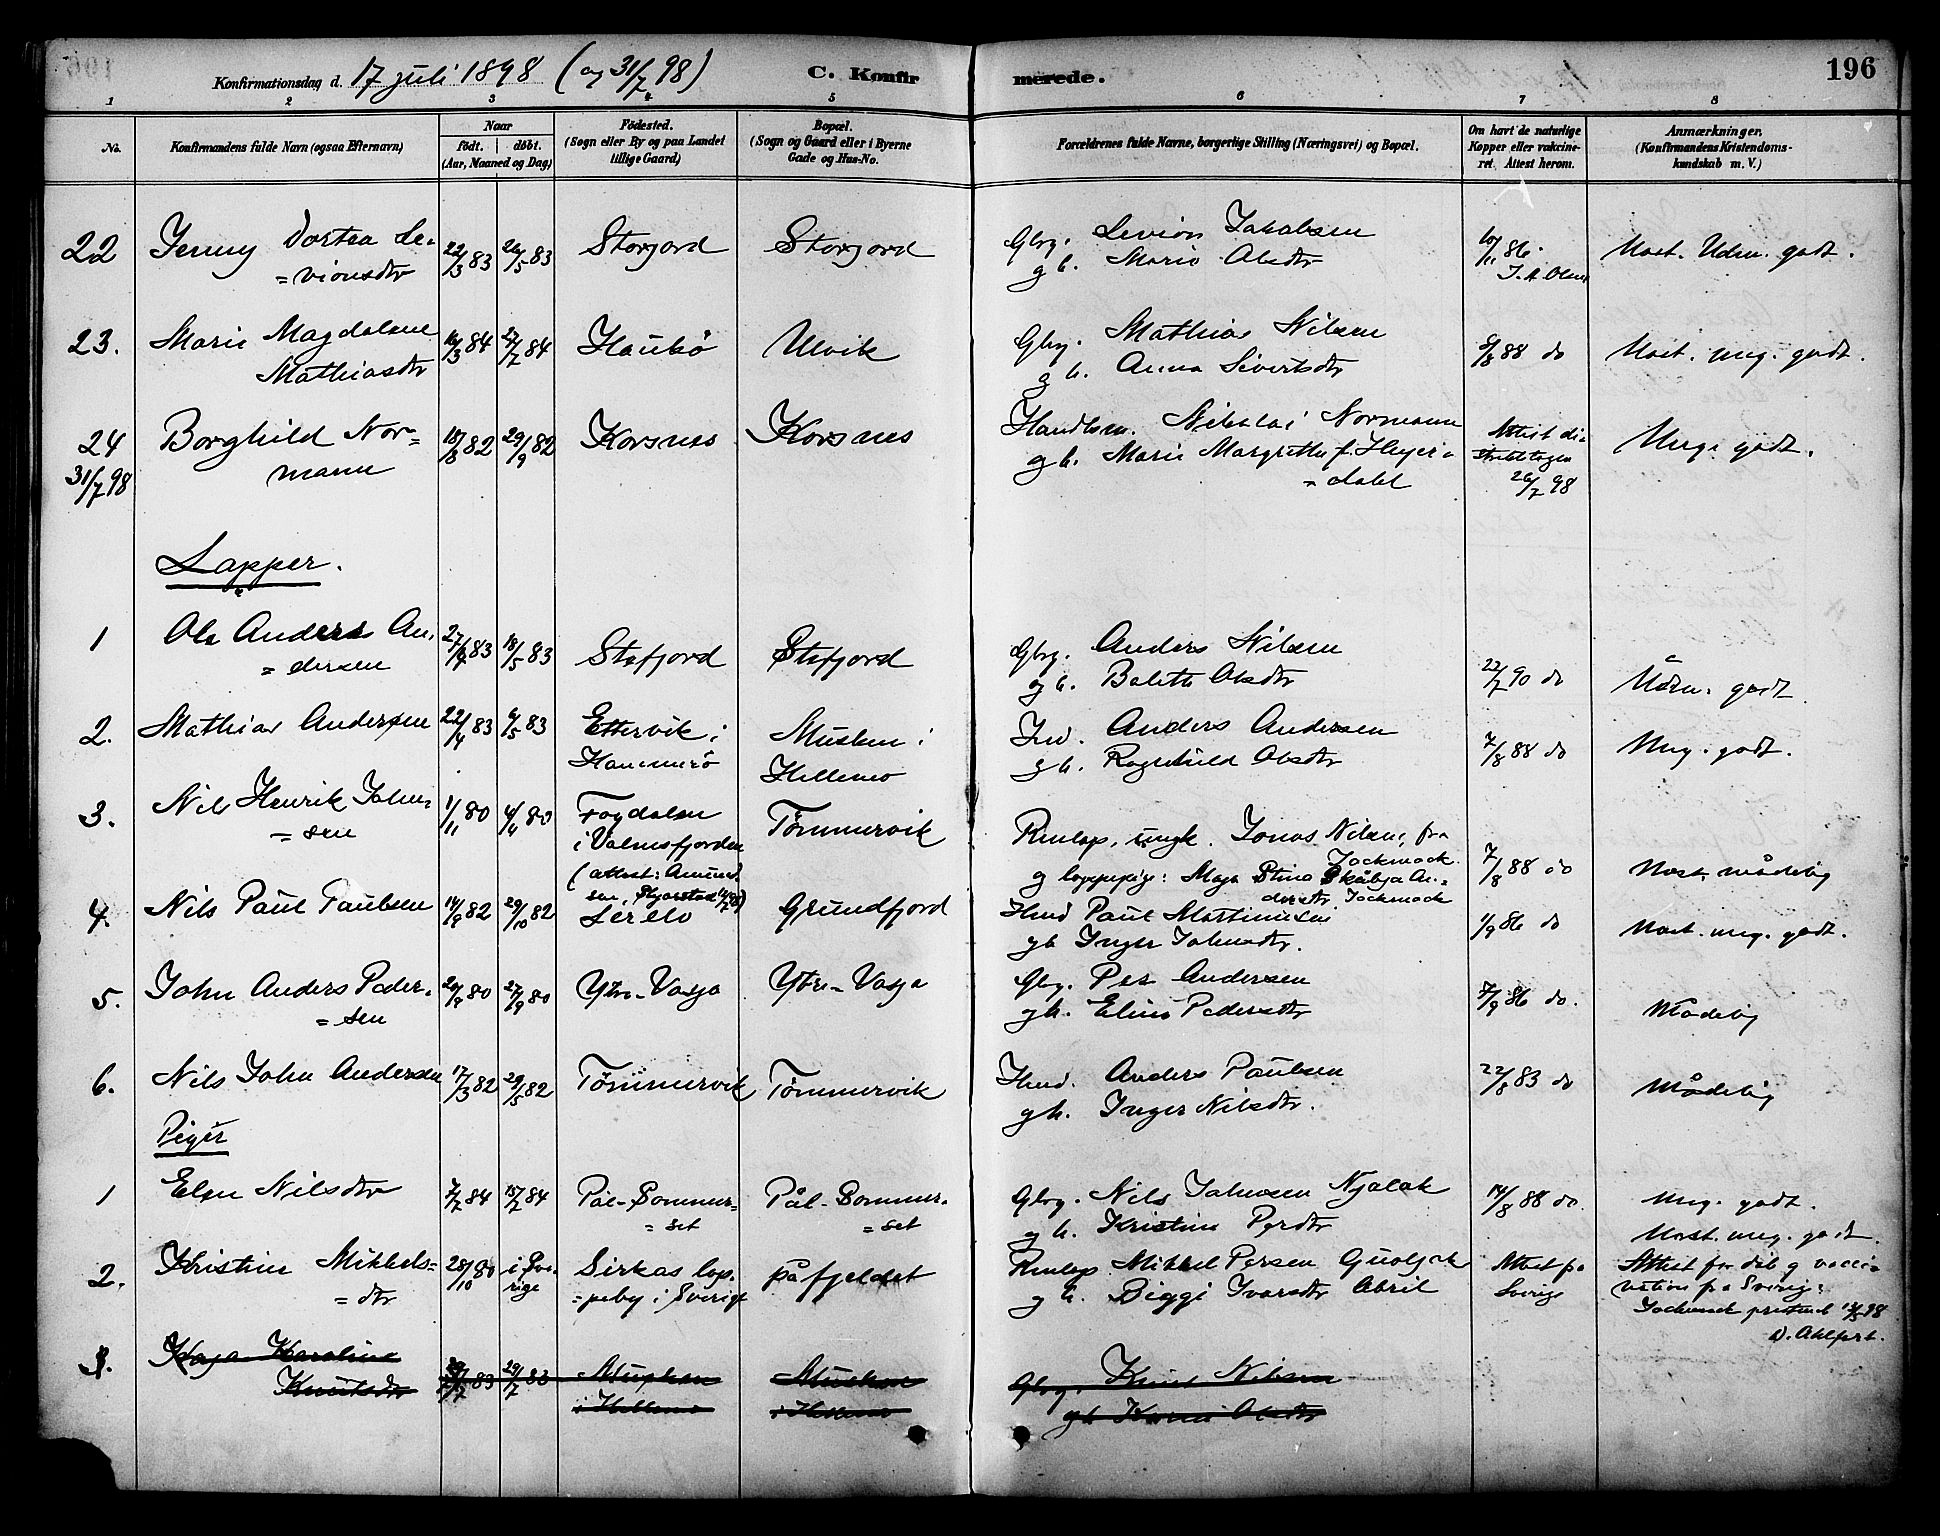 Konfirmationsdag d. 17 juli 1898 (og 31/7 98) C. Konfirmerede. 196
1 2 3 4 5 6 7 8
No. Konfirmandens fulde Navn (ogsaa Efternavn) Naar født. døbt. (Aar, Maaned og Dag) Fødested. (Sogn eller By og paa Landet tillige Gaard) Bopæl. (Sogn og Gaard eller i Byerne Gade og Hus-No. Forældrenes fulde Navne, borgerlige Stilling (Næringsvei) og Bopæl. Om havt de naturlige Kopper eller vakcineret. Attest herom. Anmærkninger. (Konfirmandens Kristendomskundskab m. V.)
22 Jenny Dortea Le=
=vionsdtr 22/3 83 26/5 83 Storjord Storjord Gbrg. Levion Jakobsen
g h. Marie Olsdtr 86. Mast. Udm. godt.
23. Marie Magdalene
Mathiasdtr 16/3 84 27/7 84 Haukø Ulvik Gbrg. Mathias Nilsen
g h. Anna Sivertsdtr 9/8 88 do Mast. meg. godt.
24 Borghild Nor=
31/7 98 mann 18/8 82 29/9 82 Korsnes Korsnes Handlsm. Nikolai Normann
g h. Marie Margrethe f. Heyer=
=dahl Attest di=
striktslægen
26/7 98 Meg. godt.
Lapper.
1 Ole Anders An=
=dersen 27/4 83 18/5 83 Stefjord Stefjord Gbrg. Anders Nilsen
g h. Balette Olsdtr 22/7 90 do Udm. godt
2. Mathias Andersen 22/4 83 6/5 83 Ettervik i
Hammerø Musken i
Hellemo Ind. Anders Andersen
g h. Ragnhild Olsdtr 7/8 88 do Meg. godt.
3. Nils Henrik John=
=sen 1/11 80 80 Fogdalen
i Valnesfjorden
(attest: Amund=
sen, Skjerstad Tømmervik Renlap, ungk. Jonas Nilsen, fra
Jockmock
og lappepige: Maja Stina An=
dersdtr, Jockmock 7/8 88 do Mast. mådelig
4. Nils Paul Paulsen 14/9 82 29/10 82 Lerelv Grundfjord Hmd Paul Mathinsen
g h Inger Johnsdtr. 1/9 86 do Mast. meg. godt.
5. John Anders Peder=
=sen 80 27/9 80 Ytre-Vasja Ytre-Vasja Gbrg. Per Andersen
g h. Elina Pedersdtr 7/9 86 do. Mådelig
6. Nils John Andersen 17/3 82 29/5 82 Tømmervik Tømmervik Hmd. Anders Paulsen
g h. Inger Nilsdtr. 22/8 83 do Mådelig
Piger
1 Elen Nilsdtr 7/2 84 15/7 84 Pål-Sommer=
=set Pål-Sommer=
=set Gbrg. Nils Johnsen Njalak
g h. Kristine Persdtr 14/8 88 do. Meg. godt.
2. Kristine Mikkels=
=dtr 28/10 80 i Sve=
rige Sirkas lap=
=peby i Sverige på fjeldet Renlap Mikkel Persen Guoljok
g h. Biggi Ivarsdtr Abril Attest fra
Sverige Mast. meg. godt.
Attest for dåb g vacci=
nation fra Sverige:
Jockmock prestemb 98
D. Ahlfort.
3. Kaja Karoline
Knutsdtr 83 29/7 83 Musken
i Hellemo Musken
i Hellemo Gbrg. Knut Nilsen
g h Karen Olsdtr